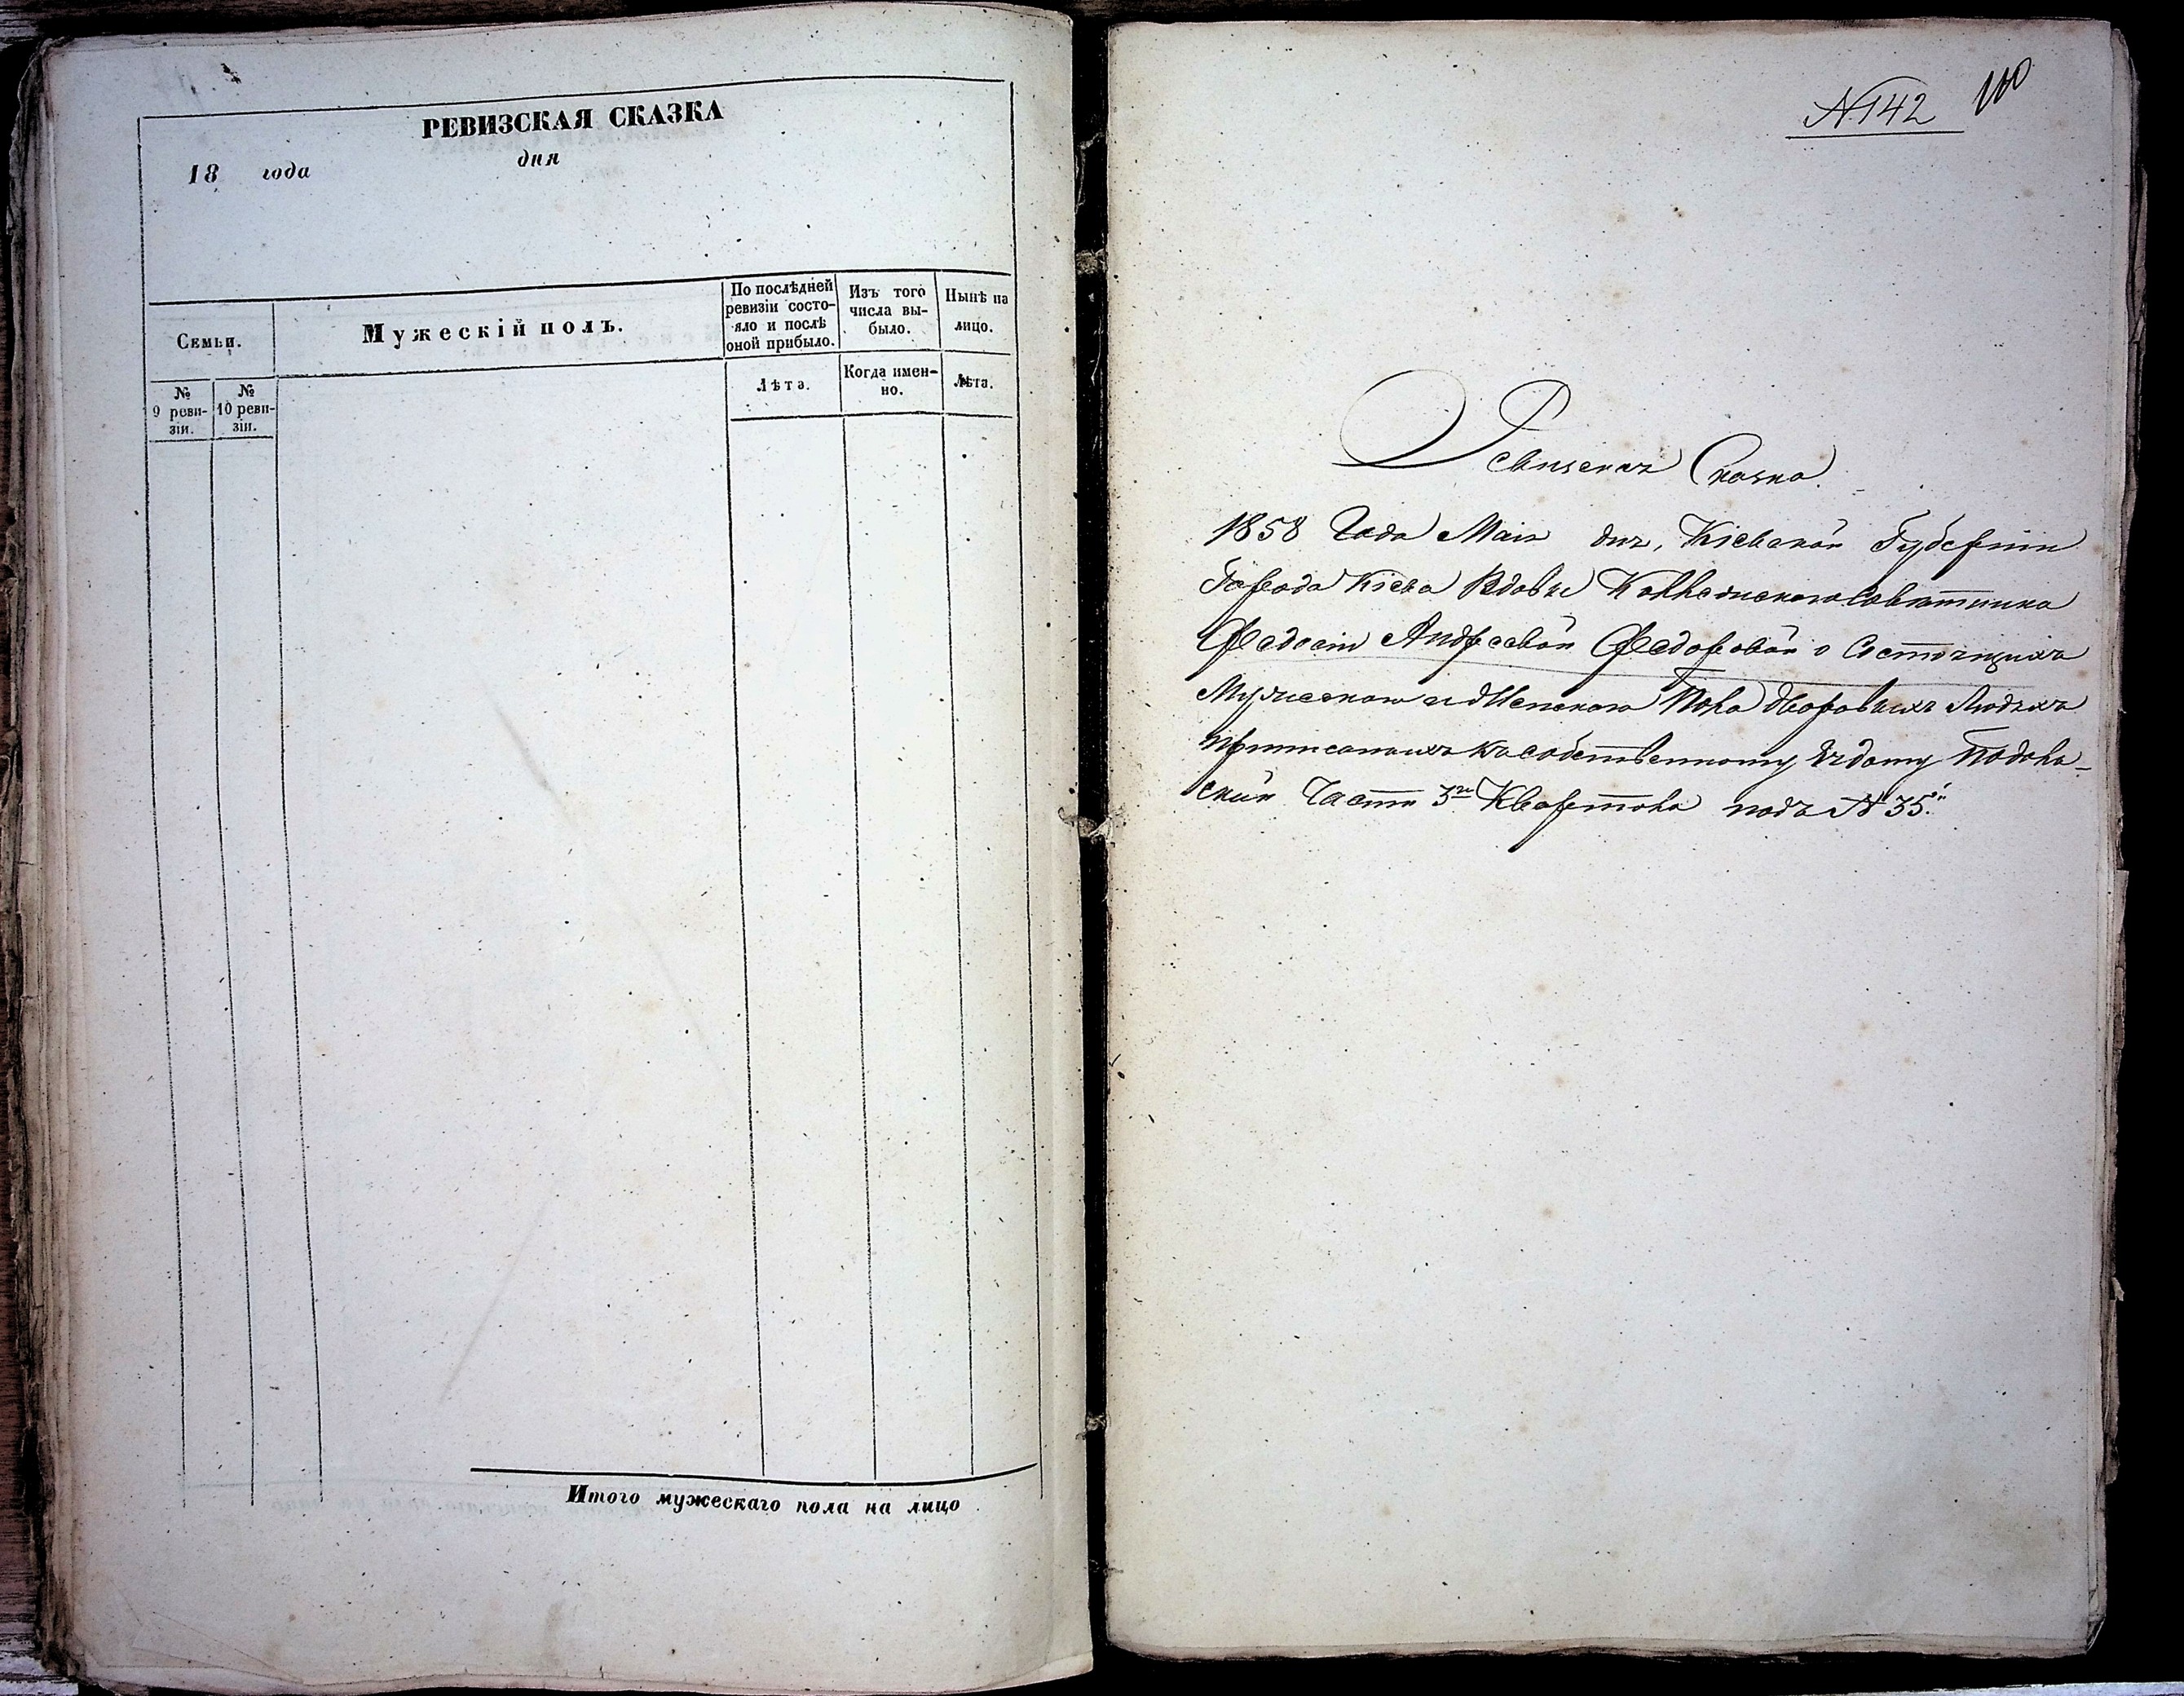 РЕВИЗСКАЯ СКАЗКА
18 года дня
Семьи.
Мужескій полъ.
По послѣдней ревизіи состо-
яло и послѣ
оной прибыло.
Изъ того
числа вы-
было.
Нынѣ на
лицо.
№
9 реви-
зіи.
№
10 реви-
зіи.
Лѣта.
Когда имен-
но.
Лѣта.
Итого мужескаго пола на лицо
N 142
Ревизская Сказка
1858 Года Маія дня, Кіевской Губерніи
Города Кіева Вдовы Коллежскаго Совѣтника
Федосіи Андреевой Федоровой о Состоящихъ
Мужескаго и Женскаго Пола дворовыхъ Людяхъ
приписаныхъ къ собственному Ея дому Подоль-
ской Части 3го Квартала подъ N 35.